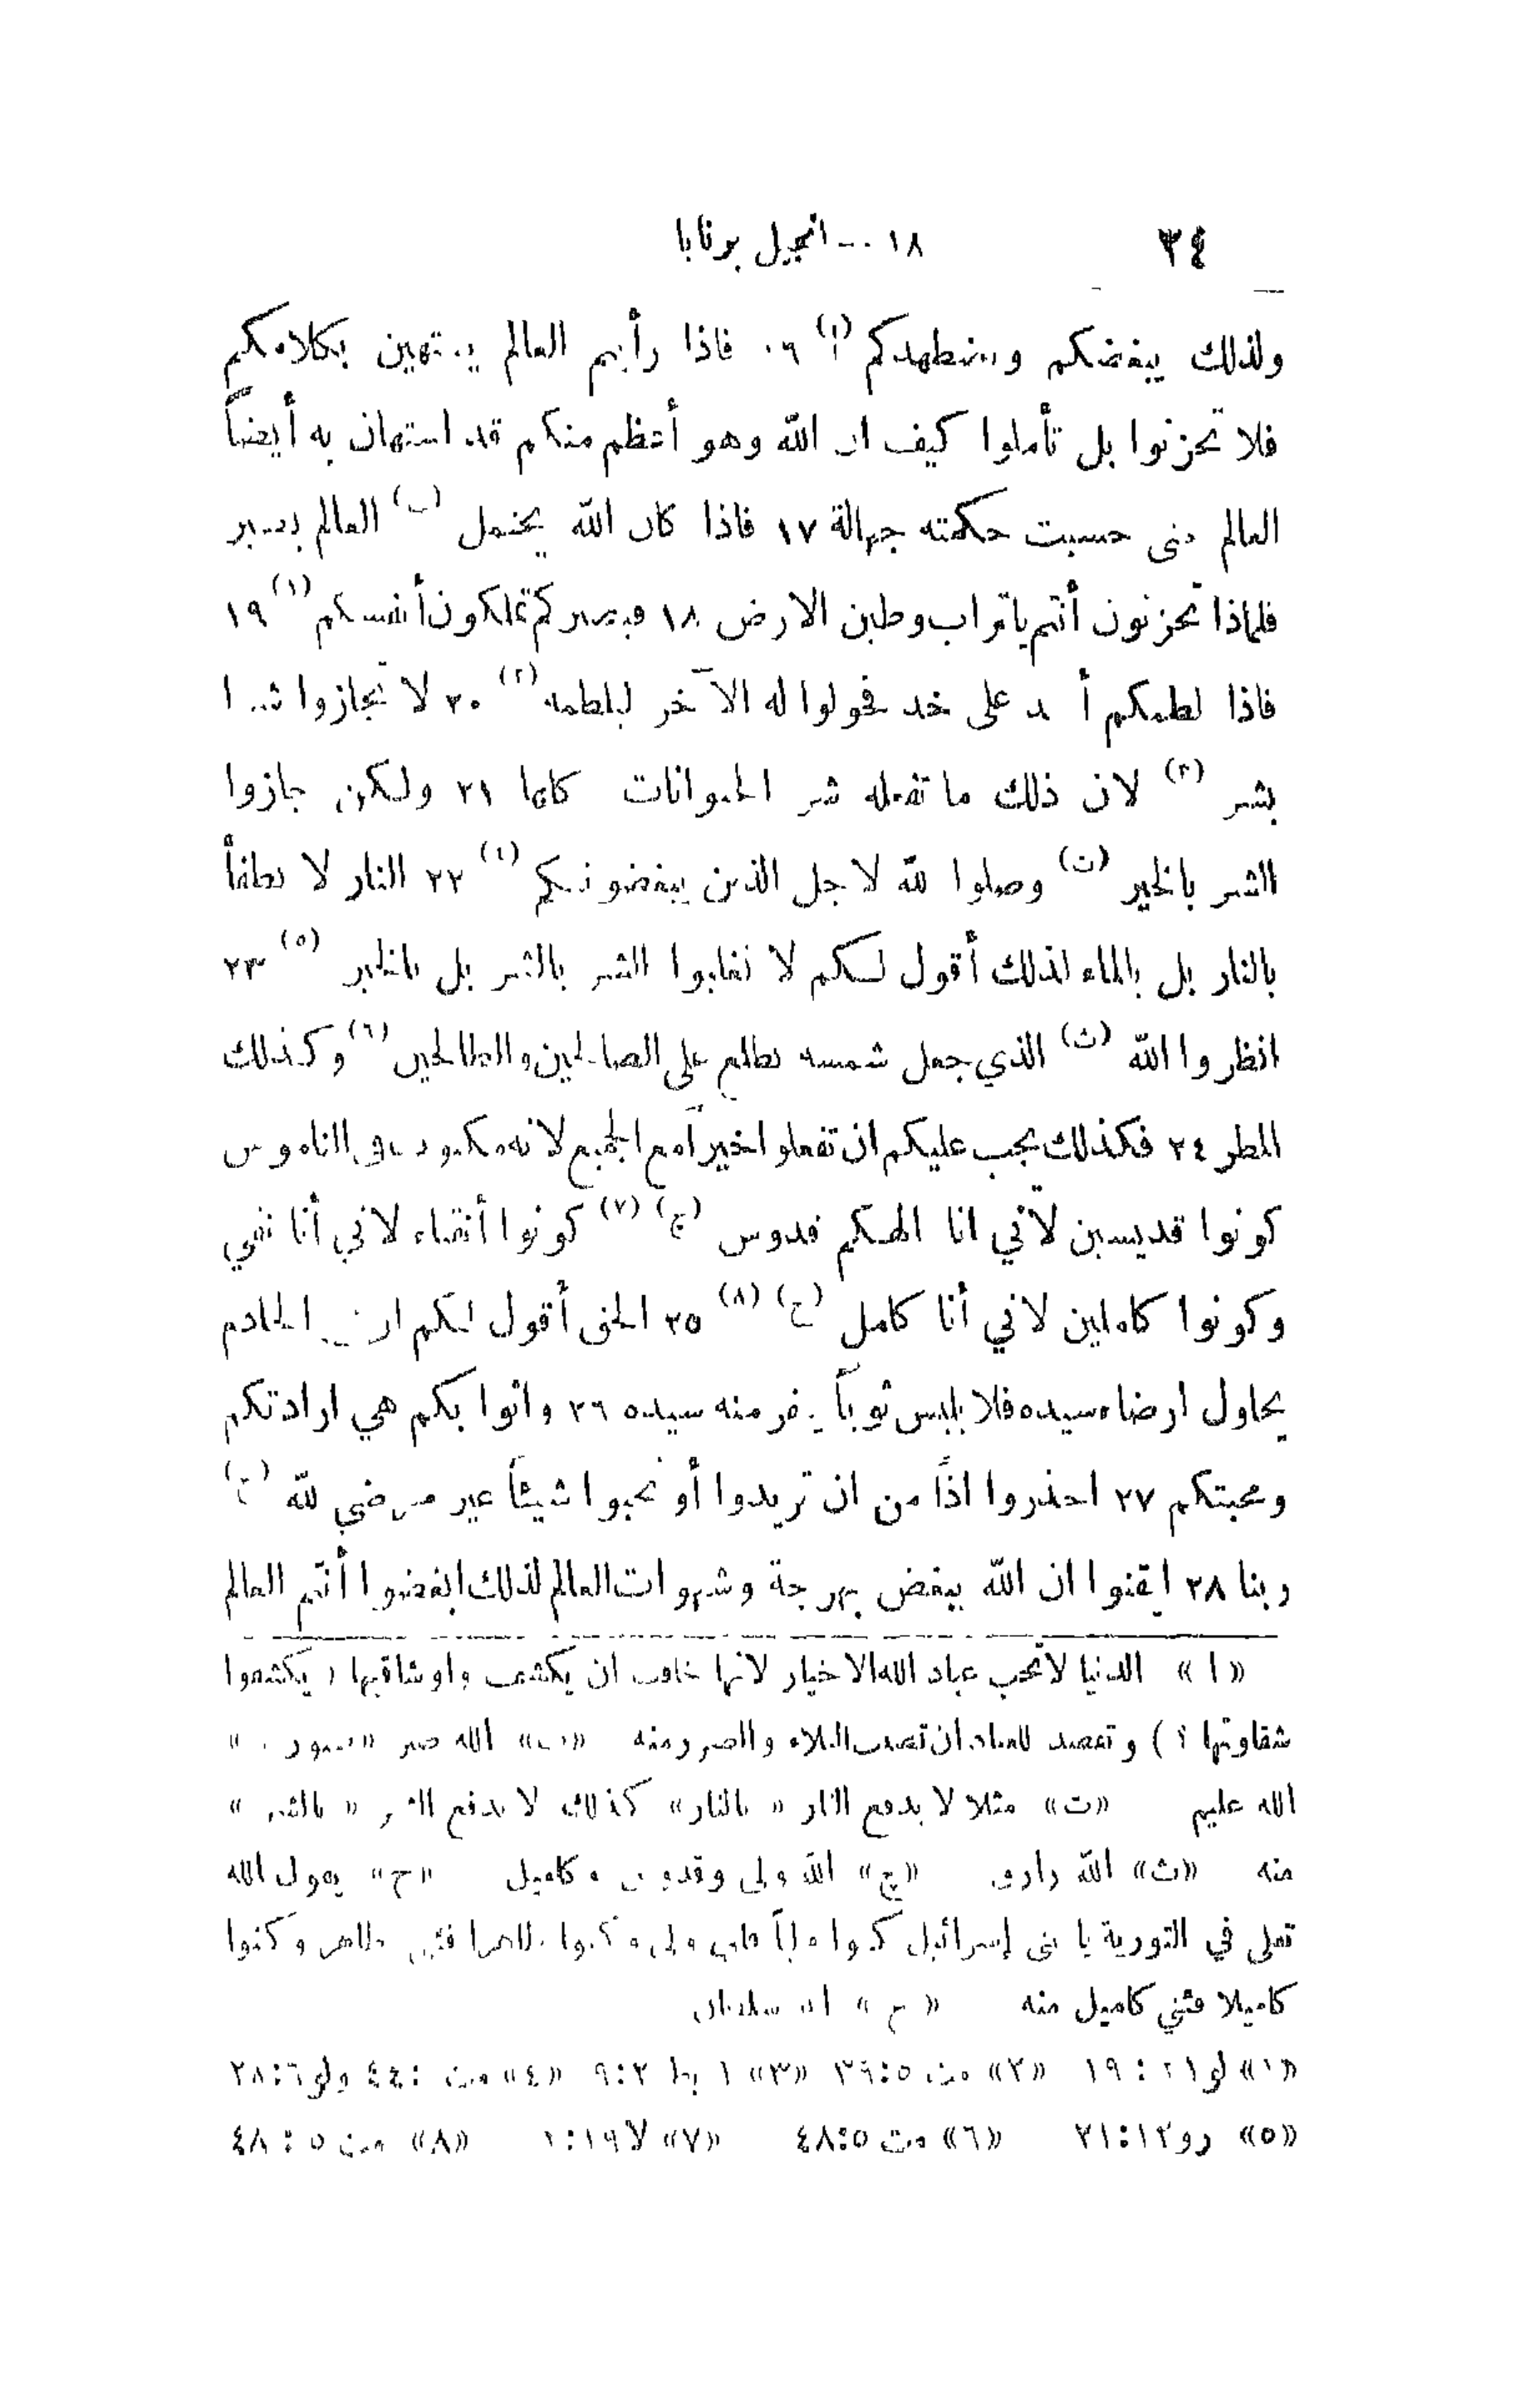 ٣٤ ١٨ — انجيل برنابا
ولذلك يبغضكم ويضطهدكم (أ) ١٦ فاذا رأيتم العالم يستهين بكلامكم
فلا تحزنوا بل تأملوا كيف ان الله وهو أعظم منكم قد استهان به أيضاً
العالم حتى حسبت حكمته جهالة ١٧ فاذا كان الله يحتمل (ب) العالم بصبر
فلماذا تحزنون أنتم ياتراب وطين الارض ١٨ فبصبركم تملكون أنفسكم (١) ١٩
فاذا لطمكم أحد على خد فحولوا له الآخر ليلطمه (٢) ٢٠ لا تجازوا شرا
بشر (٣) لان ذلك ما تفعله شر الحيوانات كلها ٢١ ولكن جازوا
الشر بالخير (ت) وصلوا لله لاجل الذين يبغضونكم (٤) ٢٢ النار لا تطفأ
بالنار بل بالماء لذلك أقول لكم لا تغلبوا الشر بالشر بل بالخير (٥) ٢٣
انظروا الله (ث) الذي جعل شمسه تطلع على الصالحين والطالحين (٦) وكذلك
المطر ٢٤ فكذلك يجب عليكم ان تفعلوا خيراً مع الجميع لانه مكتوب في الناموس
كونوا قديسين لأني انا الهكم قدوس (ج) (٧) كونوا أنقياء لاني أنا نقي
وكونوا كاملين لاني أنا كامل (ح) (٨) ٢٥ الحق أقول لكم ان الخادم
يحاول ارضاء سيده فلا يلبس ثوباً ينفر منه سيده ٢٦ واثوابكم هي ارادتكم
ومحبتكم ٢٧ احذروا اذاً من ان تريدوا أو تحبوا شيئاً غير مرضي لله (خ)
ربنا ٢٨ ايقنوا ان الله يبغض بهرجة وشهوات العالم لذلك ابغضوا أنتم العالم
«ا» الدنيا لا تحب عباد الله الاخيار لانها خافت ان يكشف واوشاقبها (يكشفوا
شقاوتها ؟) وتقصد للعباد ان تصب البلاء والضرر منه «ب» الله صبر «صبور»
الله عليم «ت» مثلا لا يدفع النار «بالنار» كذلك لا يدفع الشر «بالشر»
منه «ث» الله رازق «ج» الله ولى وقدوس وكاميل «ح» يقول الله
تعلى في التورية يا بنى إسرائيل وكنوا
كاميلا فئني كاميل منه «خ» الله سلطان
«١» لو ٢١ : ١٩ «٢» مت ٥:٣٩ «٣» ١ بط ٣:٩ «٤» مت ٥:٤٤ ولو ٦:٢٨
«٥» رو ١٢:٢١ «٦» مت ٥:٤٨ «٧» لا ١٩:٢ «٨» مت ٥:٤٨